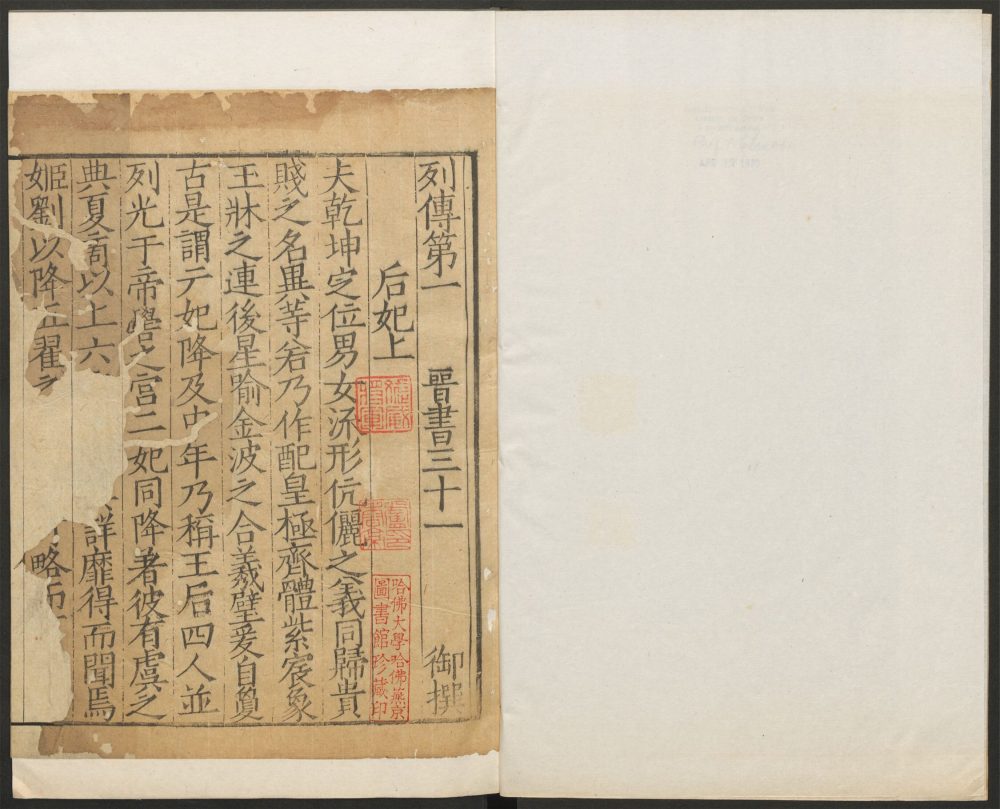 列傳第一 晉書三十一 御撰
后妃上
夫乾坤定位男女流形伉儷之義同歸貴
賤之名異等若乃作配皇極齊體紫宸象
玉牀之連後星喻金波之合義璧爰自敻
古是謂元妃降及中年乃稱王后四人並
列光于帝嚳之宮二妃同降著彼有虞之
典夏商以上六 詳靡得而聞焉
姬劉以降五翟之 略而
哈佛大學哈佛燕京
圖書館珍藏印
APR 15